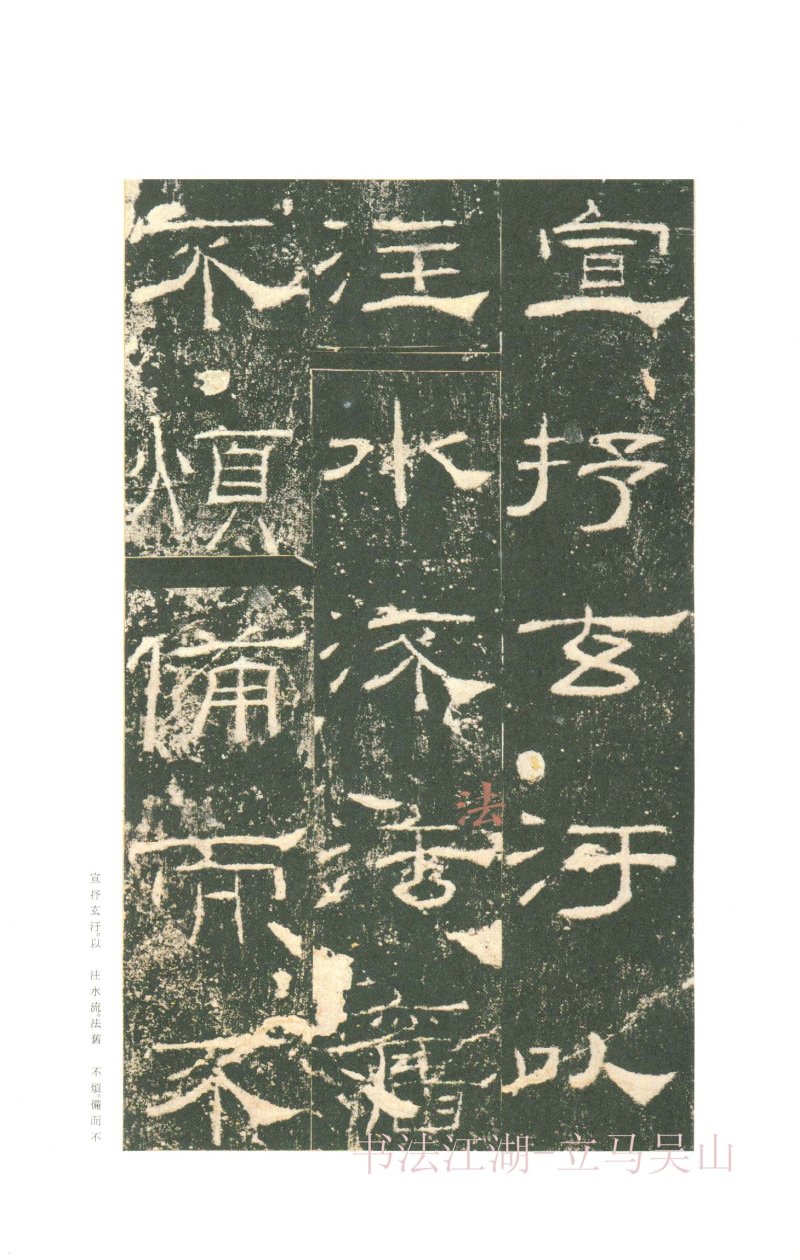 宣抒玄汙以
注水流法舊
不煩備而不
法
宣抒玄汙。以　注水流。法舊　不煩。備而不
书法江湖-立马吴山